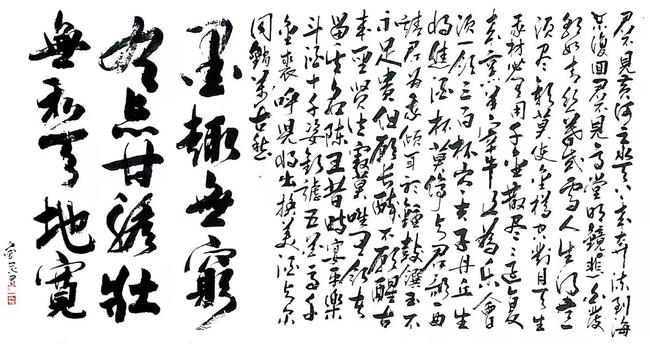 君不見黄河之水天上来奔流到海
不復回君不見高堂明鏡悲白髮
朝如青絲暮成雪人生得意
須尽歡莫使金樽空對月天生
我材必有用千金散尽還復
来烹羊宰牛且為樂會
須一飲三百杯岑夫子丹丘生
將進酒杯莫停与君歌一曲
請君為我傾耳聽鐘鼓饌玉不
足貴但願長醉不願醒古
来聖賢皆寂寞唯有飲者
留其名陳王昔時宴平樂
斗酒十千恣歡謔五花馬千
金裘呼兒將出換美酒与尔
同銷萬古愁
墨趣無窮
甘壯
無私天地寬